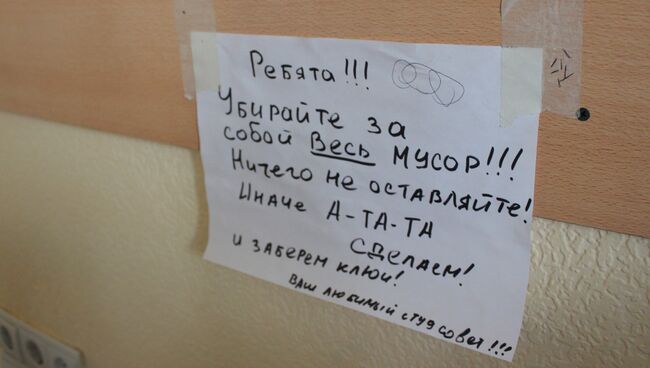 Ребята!!!
Убирайте за
собой Весь мусор!!!
Ничего не оставляйте!
Иначе А-ТА-ТА
сделаем!
и заберем ключи!
ваш любимый студсовет!!!